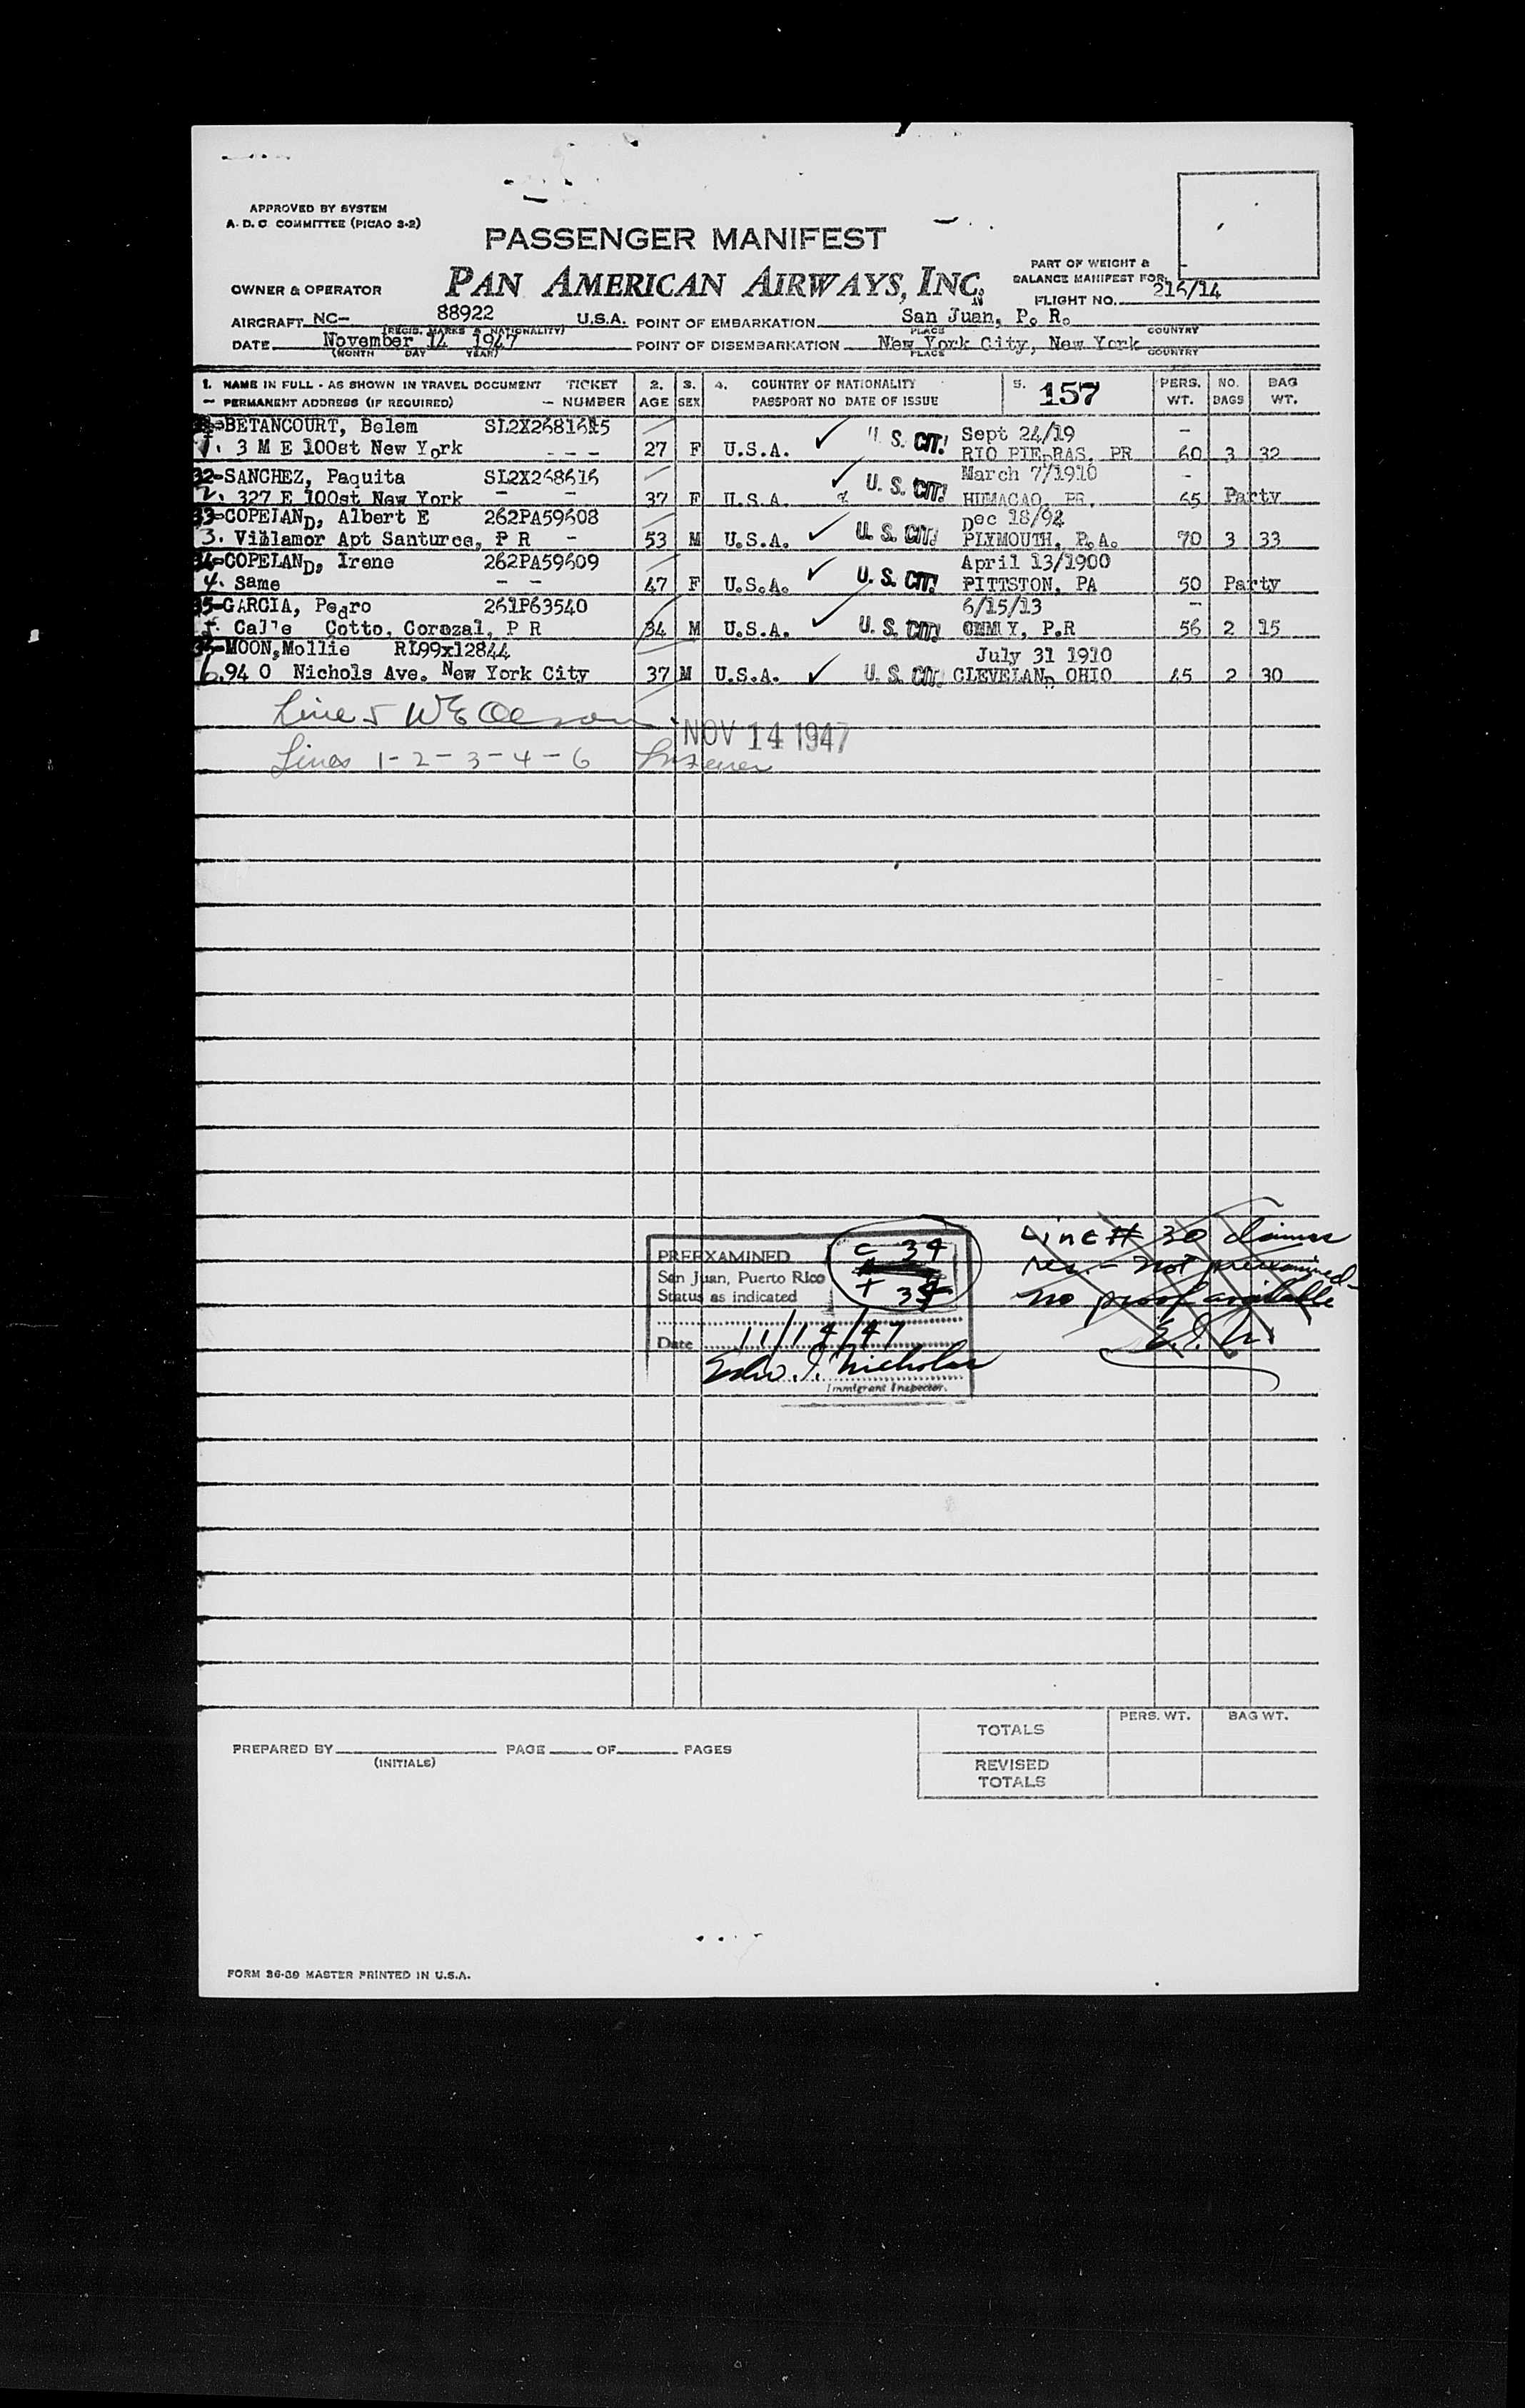 APPROVED BY SYSTEM
A. D. C COMMITTEE (PICAO 3-2)
PASSENGER MANIFEST
PAN AMERICAN AIRWAYS, INC.
PART OF WEIGHT &
BALANCE MANIFEST FOR
OWNER & OPERATOR
FLIGHT NO. 216/14
AIRCRAFT NC- 88922 U.S.A. POINT OF EMBARKATION San Juan, P. R.
(REGIS. MARKS & NATIONALITY) PLACE COUNTRY
DATE November 14 1947 POINT OF DISEMBARKATION New York City, New York
(MONTH DAY YEAR) PLACE COUNTRY
1. NAME IN FULL - AS SHOWN IN TRAVEL DOCUMENT TICKET 2. 3. 4. COUNTRY OF NATIONALITY 5. 157 PERS. NO. BAG
— PERMANENT ADDRESS (IF REQUIRED) — NUMBER AGE SEX PASSPORT NO DATE OF ISSUE WT. BAGS WT.
BETANCOURT, Belem Sept 24/19 -
1. 3 M E 100st New York - - - 27 F U.S.A. ✓ U. S. CIT! RIO PIEDRAS, PR 60 3 32
32-SANCHEZ, Paquita SL2X268616 March 7/1910 -
2. 327 E 100st New York - - 37 F U.S.A. ✓ U. S. CIT! HUMACAO, PR. 65 Party
33-COPELAND, Albert E 262PA59608 Dec 18/94
3. Villamor Apt Santurce, P R - 53 M U.S.A. ✓ U. S. CIT! PLYMOUTH, P.A. 70 3 33
34-COPELAND, Irene 262PA59609 April 13/1900
4. Same - - 47 F U.S.A. ✓ U. S. CIT! PITTSTON, PA 50 Party
35-GARCIA, Pedro 261P63540 6/15/13 -
5. Calle Cotto, Corozal, P R 34 M U.S.A. ✓ U. S. CIT! P.R 56 2 15
36-MOON, Mollie RL99x12844 July 31 1910
6. 940 Nichols Ave. New York City 37 M U.S.A. ✓ U. S. CIT! CLEVELAND OHIO 45 2 30
Line 5 WE
NOV 14 1947
Lines 1-2-3-4-6
PREEXAMINED
San Juan, Puerto Rico
Status as indicated
C 34
T 34
Date 11/14/47
Edw. J. Nicholas
Immigrant Inspector.
Line # 30 claims
res. - not preexamined -
no proof available
E. J. N.
TOTALS PERS. WT. BAG WT.
PREPARED BY PAGE OF PAGES
(INITIALS)
REVISED
TOTALS
FORM 36-39 MASTER PRINTED IN U.S.A.